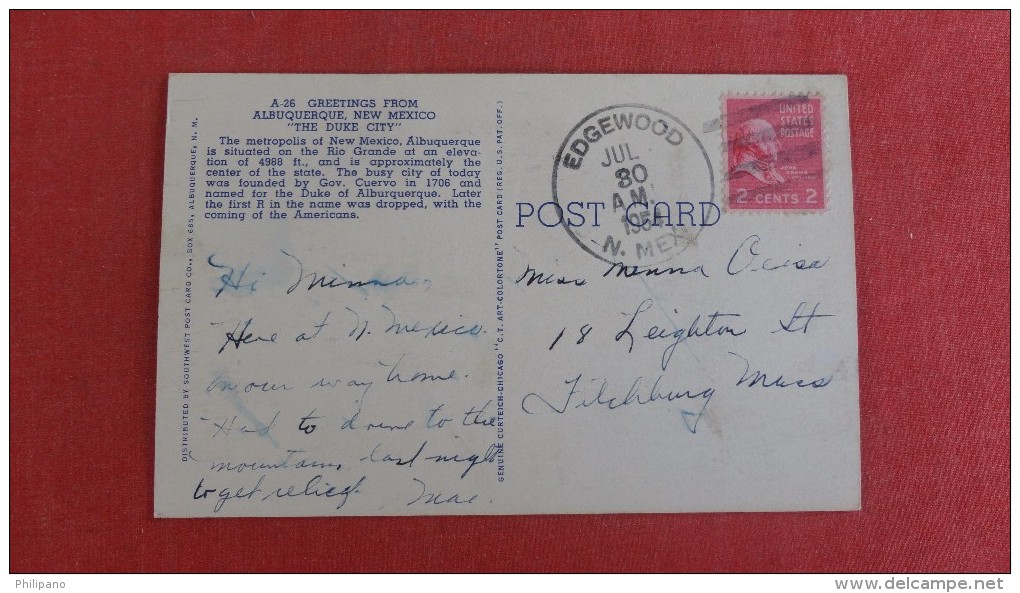 A-26 GREETINGS FROM
ALBUQUERQUE, NEW MEXICO
"THE DUKE CITY"
The metropolis of New Mexico, Albuquerque
is situated on the Rio Grande at an eleva-
tion of 4988 ft., and is approximately the
center of the state. The busy city of today
was founded by Gov. Cuervo in 1706 and
named for the Duke of Alburquerque. Later
the first R in the name was dropped, with the
coming of the Americans.
Hi Minna,
Here at N. Mexico.
on our way home.
Had to drive to the
mountains last night
to get relief. Mae.
DISTRIBUTED BY SOUTHWEST POST CARD CO., BOX 685, ALBUQUERQUE, N. M.
GENUINE CURTEICH-CHICAGO "C.T. ART-COLORTONE" POST CARD (REG. U.S. PAT. OFF.)
EDGEWOOD
JUL
30
A.M.
1954
N. MEX.
UNITED
STATES
POSTAGE
2 CENTS 2
POST CARD
Miss Menna
18 Leighton St
Fitchburg Mass
Philipano
www.delcampe.net